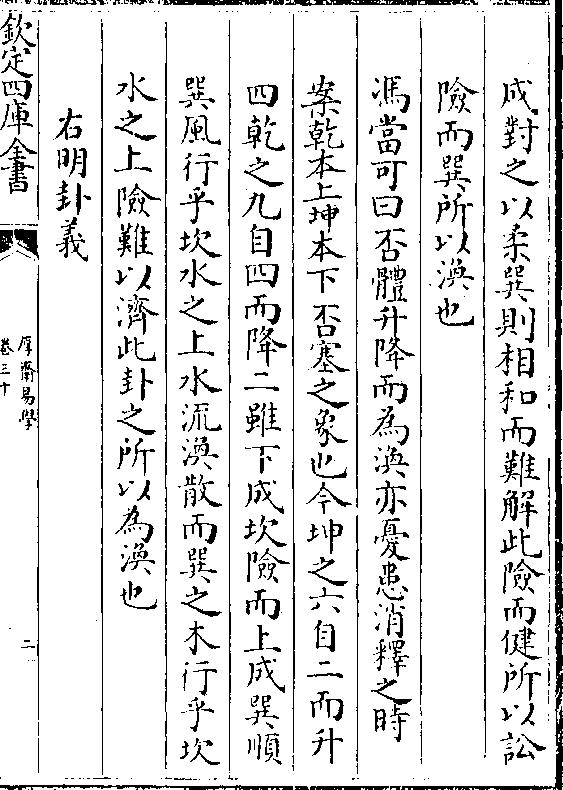 成對之以柔巽則相和而難解此險而健所以訟
險而巽所以渙也
馮當可曰否體升降而為渙亦憂患消釋之時
案乾本上坤本下否塞之象也今坤之六自二而升
四乾之九自四而降二雖下成坎險而上成巽順
巽風行乎坎水之上水流渙散而巽之木行乎坎
水之上險難以濟此卦之所以為渙也
右明卦義
欽定四庫全書
厚齋易學
卷三十
二